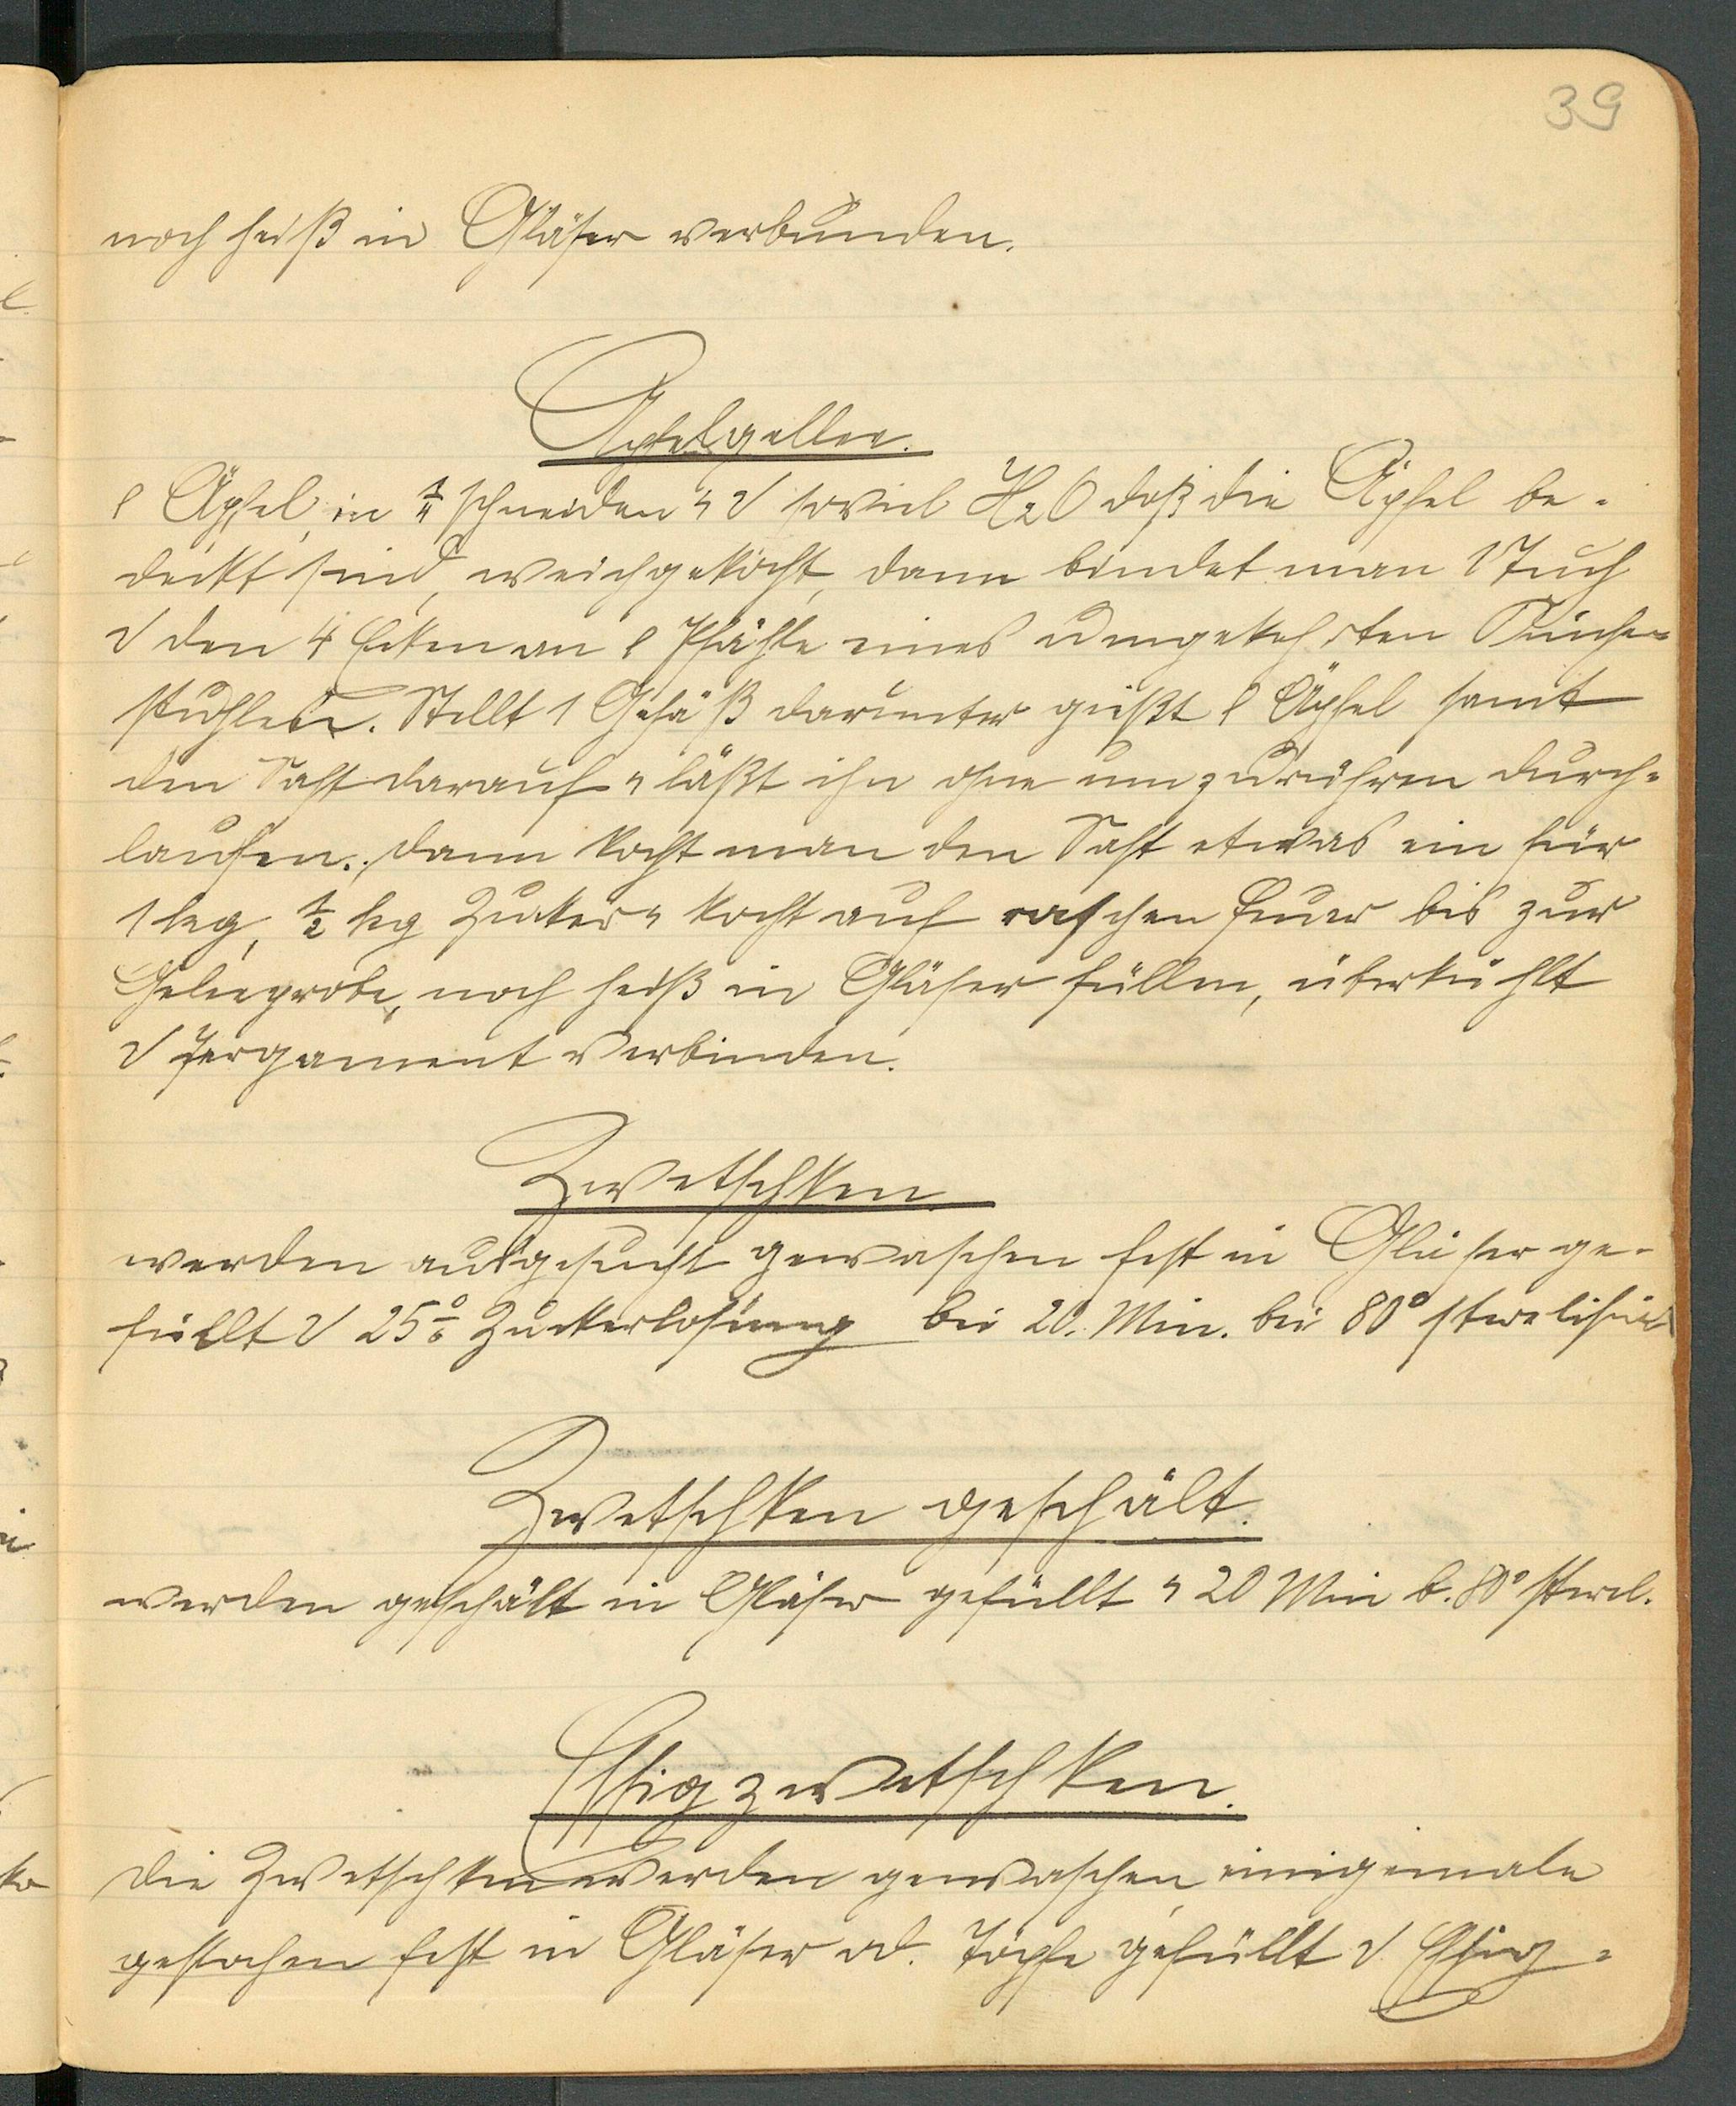 39
noch heiß in Gläser verbunden.
Apfelgellee.
l Äpfel, in 1/4 schneiden u √ soviel H2O daß die Äpfel be-
deckt sind, weichgekocht, dann bindet man 1 Tuch
√ den 4 Ecken an l Pfähle eines umgekehrten Küchen-
stuhles. Stellt 1 Gefäß darunter gießt l Äpfel samt
den Saft darauf u läßt ihn ohne umzurühren durch-
laufen. Dann kocht man den Saft etwas ein für
1 kg, 1/2 kg Zucker u kocht auf raschen Feuer bis zur
Geleeprobe, noch heiß in Gläser füllen, überkühlt
√ Pergament verbinden.
Zwetschken
werden ausgesucht gewaschen fest in Gläser ge-
füllt √ 25% Zuckerlösung bei 20. Min. bei 80° sterelisier
Zwetschken geschält.
werden geschält in Gläser gefüllt u 20 Min b. 80° sterel.
Essigzwetschken.
Die Zwetschken werden gewaschen, einigemale
gestochen fest in Gläser od. Töpfe gefüllt √ Essig-